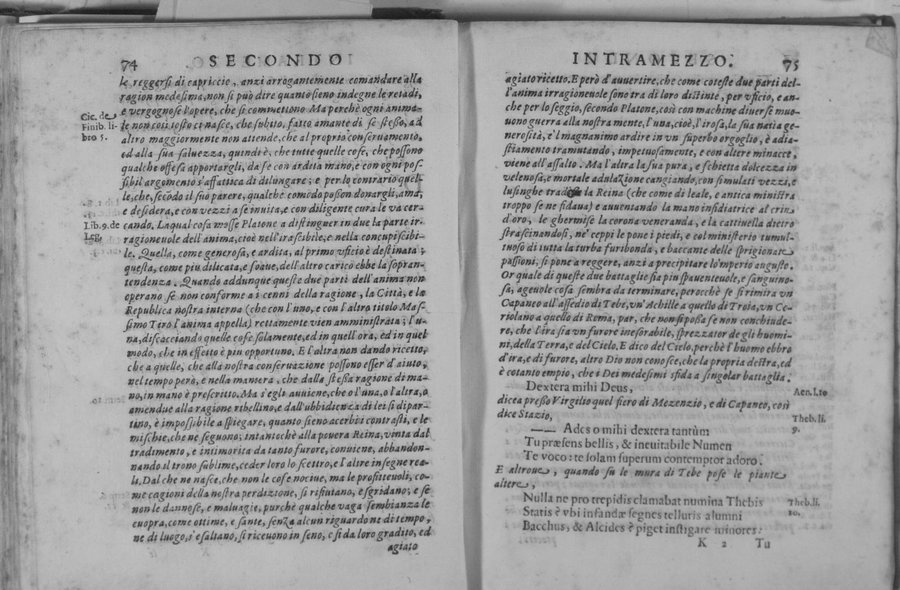 74 SECONDO
le reggersi di capriccio, anzi arrogantemente comandare alla
ragion medesima, non si può dire quanto sieno indegne le retadi,
e vergognose l'opere, che si commettono Ma perchè ogni anima-
le non così tosto ci nasce, che subito, fatto amante di se stesso, ad
altro maggiormente non attende, che al proprio conseruamento,
ed alla sua saluezza, quindi è, che tutte quelle cose, che possono
qualche offesa apportargli, da se con ardita mano, e con ogni pos-
sibil argomento s'affattica di dilungare; e per lo contrario quel-
le, che, secōdo il suo parere, qualche comodo posson donargli, ama,
e desidera, e con vezzi a se inuita, e con diligente cura le va cer-
cando. La qual cosa mosse Platone a distinguer in due la parte ir-
ragioneuole dell'anima, cioè nell'irascibile, e nella concupiscibi-
le. Quella, come generosa, e ardita, al primo vficio è destinata;
questa, come più dilicata, e soaue, dell'altro carico ebbe la sopran-
tendenza. Quando addunque queste due parti dell'anima non
operano se non conforme a i cenni della ragione, la Città, e la
Republica nostra interna (che con l'uno, e con l'altro titolo Mas-
simo Tiro l'anima appella) rettamente vien amministrata; l'u-
na, discacciando quelle cose solamente, ed in quell'ora, ed in quel
modo, che in effetto è più opportuno. E l'altra non dando ricetto,
che a quelle, che alla nostra conseruazione possono esser d'aiuto,
nel tempo però, e nella maniera, che dalla stessa ragione di ma-
no, in mano è prescritto. Ma s'egli auuiene, che o l'una, o l'altra, o
amendue alla ragione ribellino, e dall'ubbidienza di lei si dipar-
tino, è impossibile a spiegare, quanto sieno acerbi i contrasti, e le
mischie, che ne seguono; intantochè alla pouera Reina, vinta dal
tradimento, e intimorita da tanto furore, conuiene, abbandon-
nando il trono sublime, ceder loro lo scettro, e l'altre insegne rea-
li. Dal che ne nasce, che non le cose noctue, ma le profitteuoli, co-
me cagioni della nostra perdizione, si rifiutano, e sgridano; e se
non le dannose, e maluagie, purchè qualche vaga sembianza le
cuopra, come ottime, e sante, senza alcun riguardo ne di tempo,
ne di luogo, s'esaltano, si riceuono in seno, e si da loro gradito, ed
agiato
Cic. de
Finib. li-
bro 5.
Lib. 9. de
Leg.
INTRAMEZZO. 75
agiato ricetto. E però d'auuertire, che come coteste due parti del-
l'anima irragioneuole sono tra di loro distinte, per vficio, e an-
che per lo seggio, secondo Platone, così con machine diuerse muo-
uono guerra alla nostra mente, l'una, cioè, l'irosa, la sua natia ge-
nerosità, e'l magnanimo ardire in vn superbo orgoglio, e adia-
stiamento tramutando, impetuosamente, e con altere minacce,
viene all'assalto. Ma l'altra la sua pura, e schietta dolcezza in
velenosa, e mortale adulazione cangiando, con simulati vezzi, e
lusinghe tradisce la Reina (che come di leale, e antica ministra
troppo se ne fidaua) e auuentando la mano insidiatrice al crin
d'oro, le ghermisce la corona veneranda, e la cattiuella dietro
strascinandosi, ne' ceppi le pone i piedi, e col ministerio tumul-
tuoso di tutta la turba furibonda, e baccante delle sprigionate
passioni, si pone a reggere, anzi a precipitare lo'mperio augusto.
Or quale di queste due battaglie sia più spauenteuole, e sanguino-
sa, ageuole cosa sembra da terminare, perochè se si rimira vn
Capaneo all'assedio di Tebe, vn'Achille a quello di Troia, vn Co-
riolano a quello di Roma, par, che non si possa se non conchiude-
re, che l'ira sia vn furore inesorabile, sprezzator de gli huomi-
ni, della Terra, e del Cielo. E dico del Cielo, perchè l'huomo ebbro
d'ira, e di furore, altro Dio non conosce, che la propria destra, ed
è cotanto empio, che i Dei medesimi sfida a singolar battaglia.
Dextera mihi Deus,
Aen. l. 10
dicea presso Virgilio quel fiero di Mezenzio, e di Capaneo, così
dice Stazio,
Theb. li.
9.
—— Ades o mihi dextera tantùm
Tu præsens bellis, & ineuitabile Numen
Te voco: te solam superum contemptor adoro.
E altroue, quando su le mura di Tebe pose le piante
altere,
Nulla ne pro trepidis clamabat numina Thebis
Theb. li.
10.
Statis è vbi infandæ segnes telluris alumni
Bacchus, & Alcides è piget instigare minores:
K 2 Tu